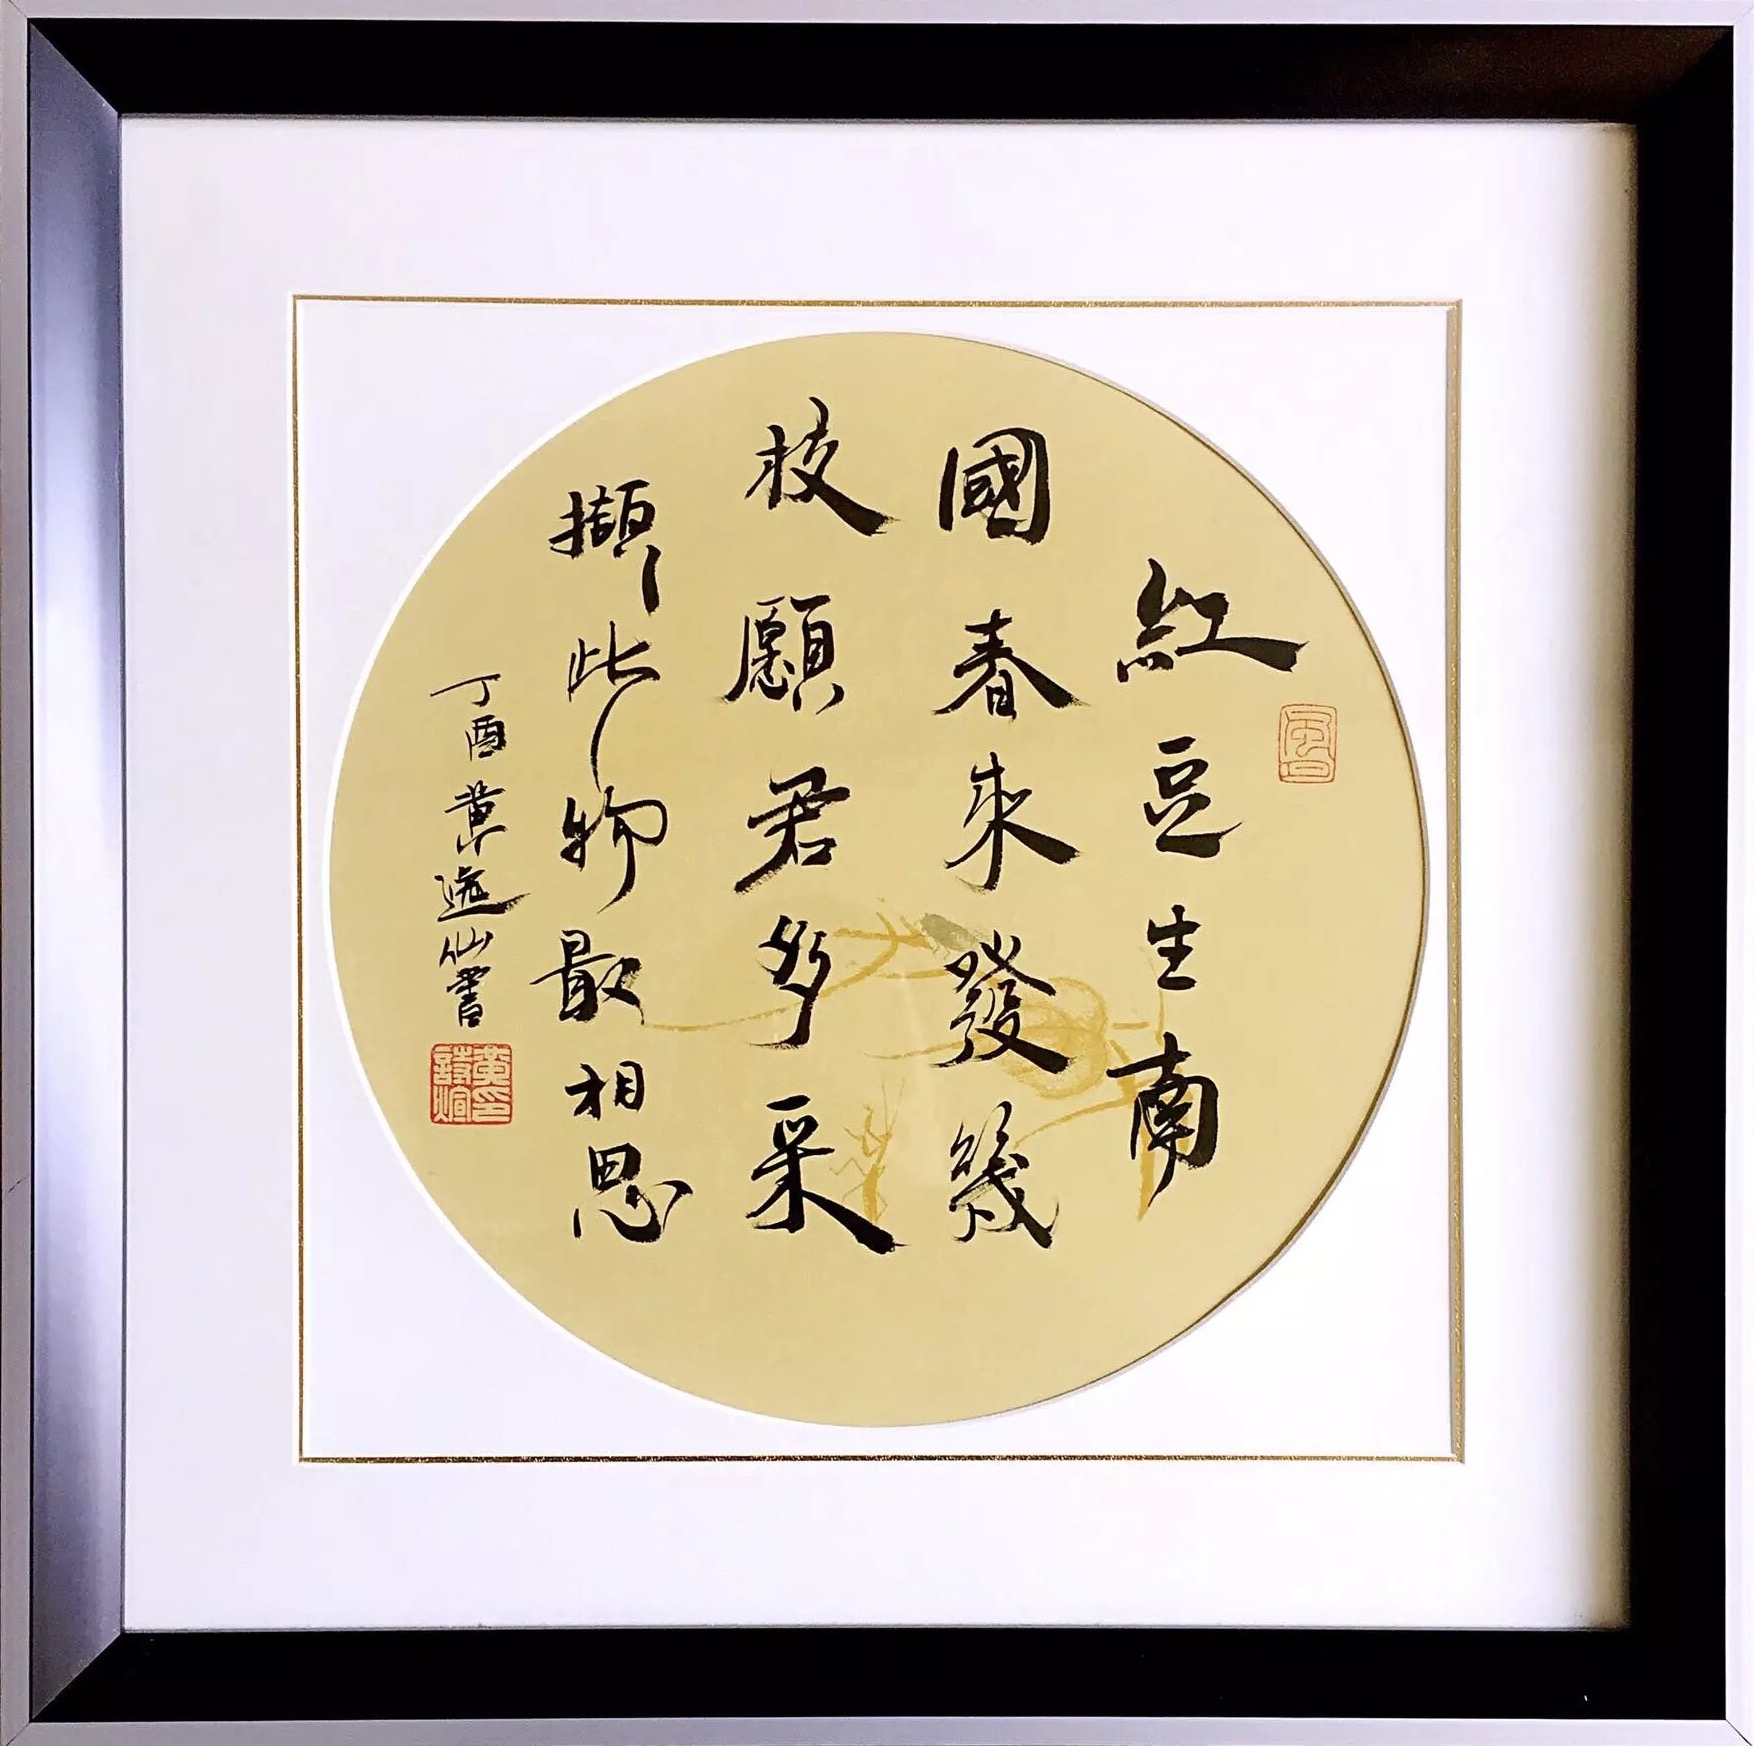 紅豆生南
國春來發幾
枝願君多采
擷此物最相思
丁酉黃逸仙書